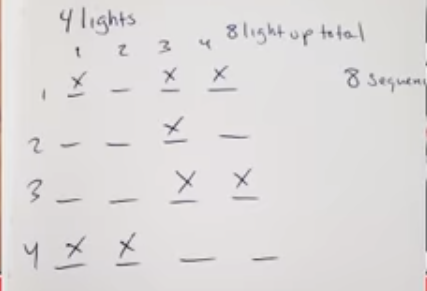 4 lights
8 light up total
1 2 3 4
8 sequen
1 X _ X X
2 _ _ X _
3 _ _ X X
4 X X _ _